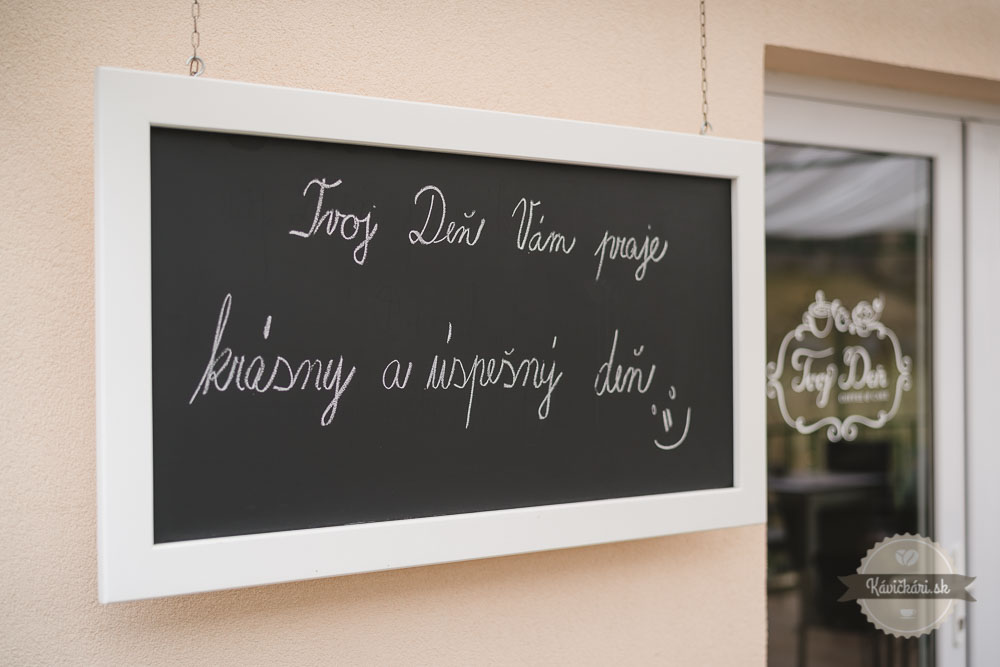 Tvoj Deň Vám praje
krásny a úspešný deň
Tvoj Deň
Kávičkári.sk